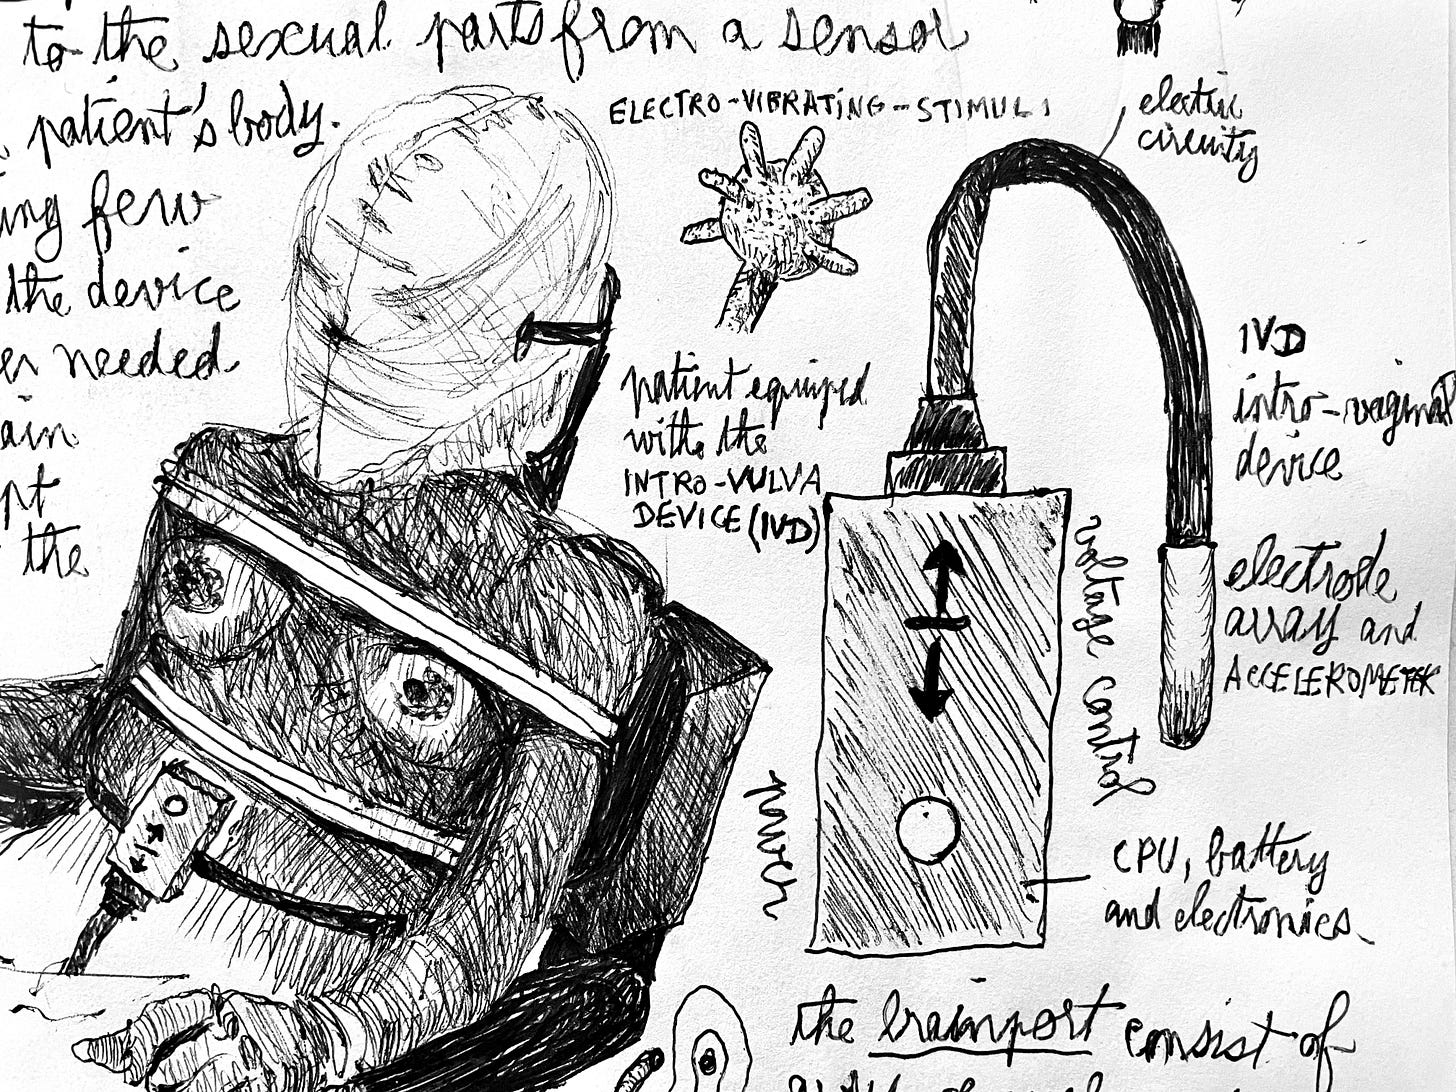 to the sexual parts from a sensor
patient's body.
ing few
the device
er needed
ain
pt
the
ELECTRO-VIBRATING-STIMULI
electric
circuitry
patient equiped
with the
INTRO-VULVA
DEVICE (IVD)
IVD
intro-vaginal
device
electrode
array and
ACCELEROMETER
voltage control
power
CPU, battery
and electronics
the brainport consist of